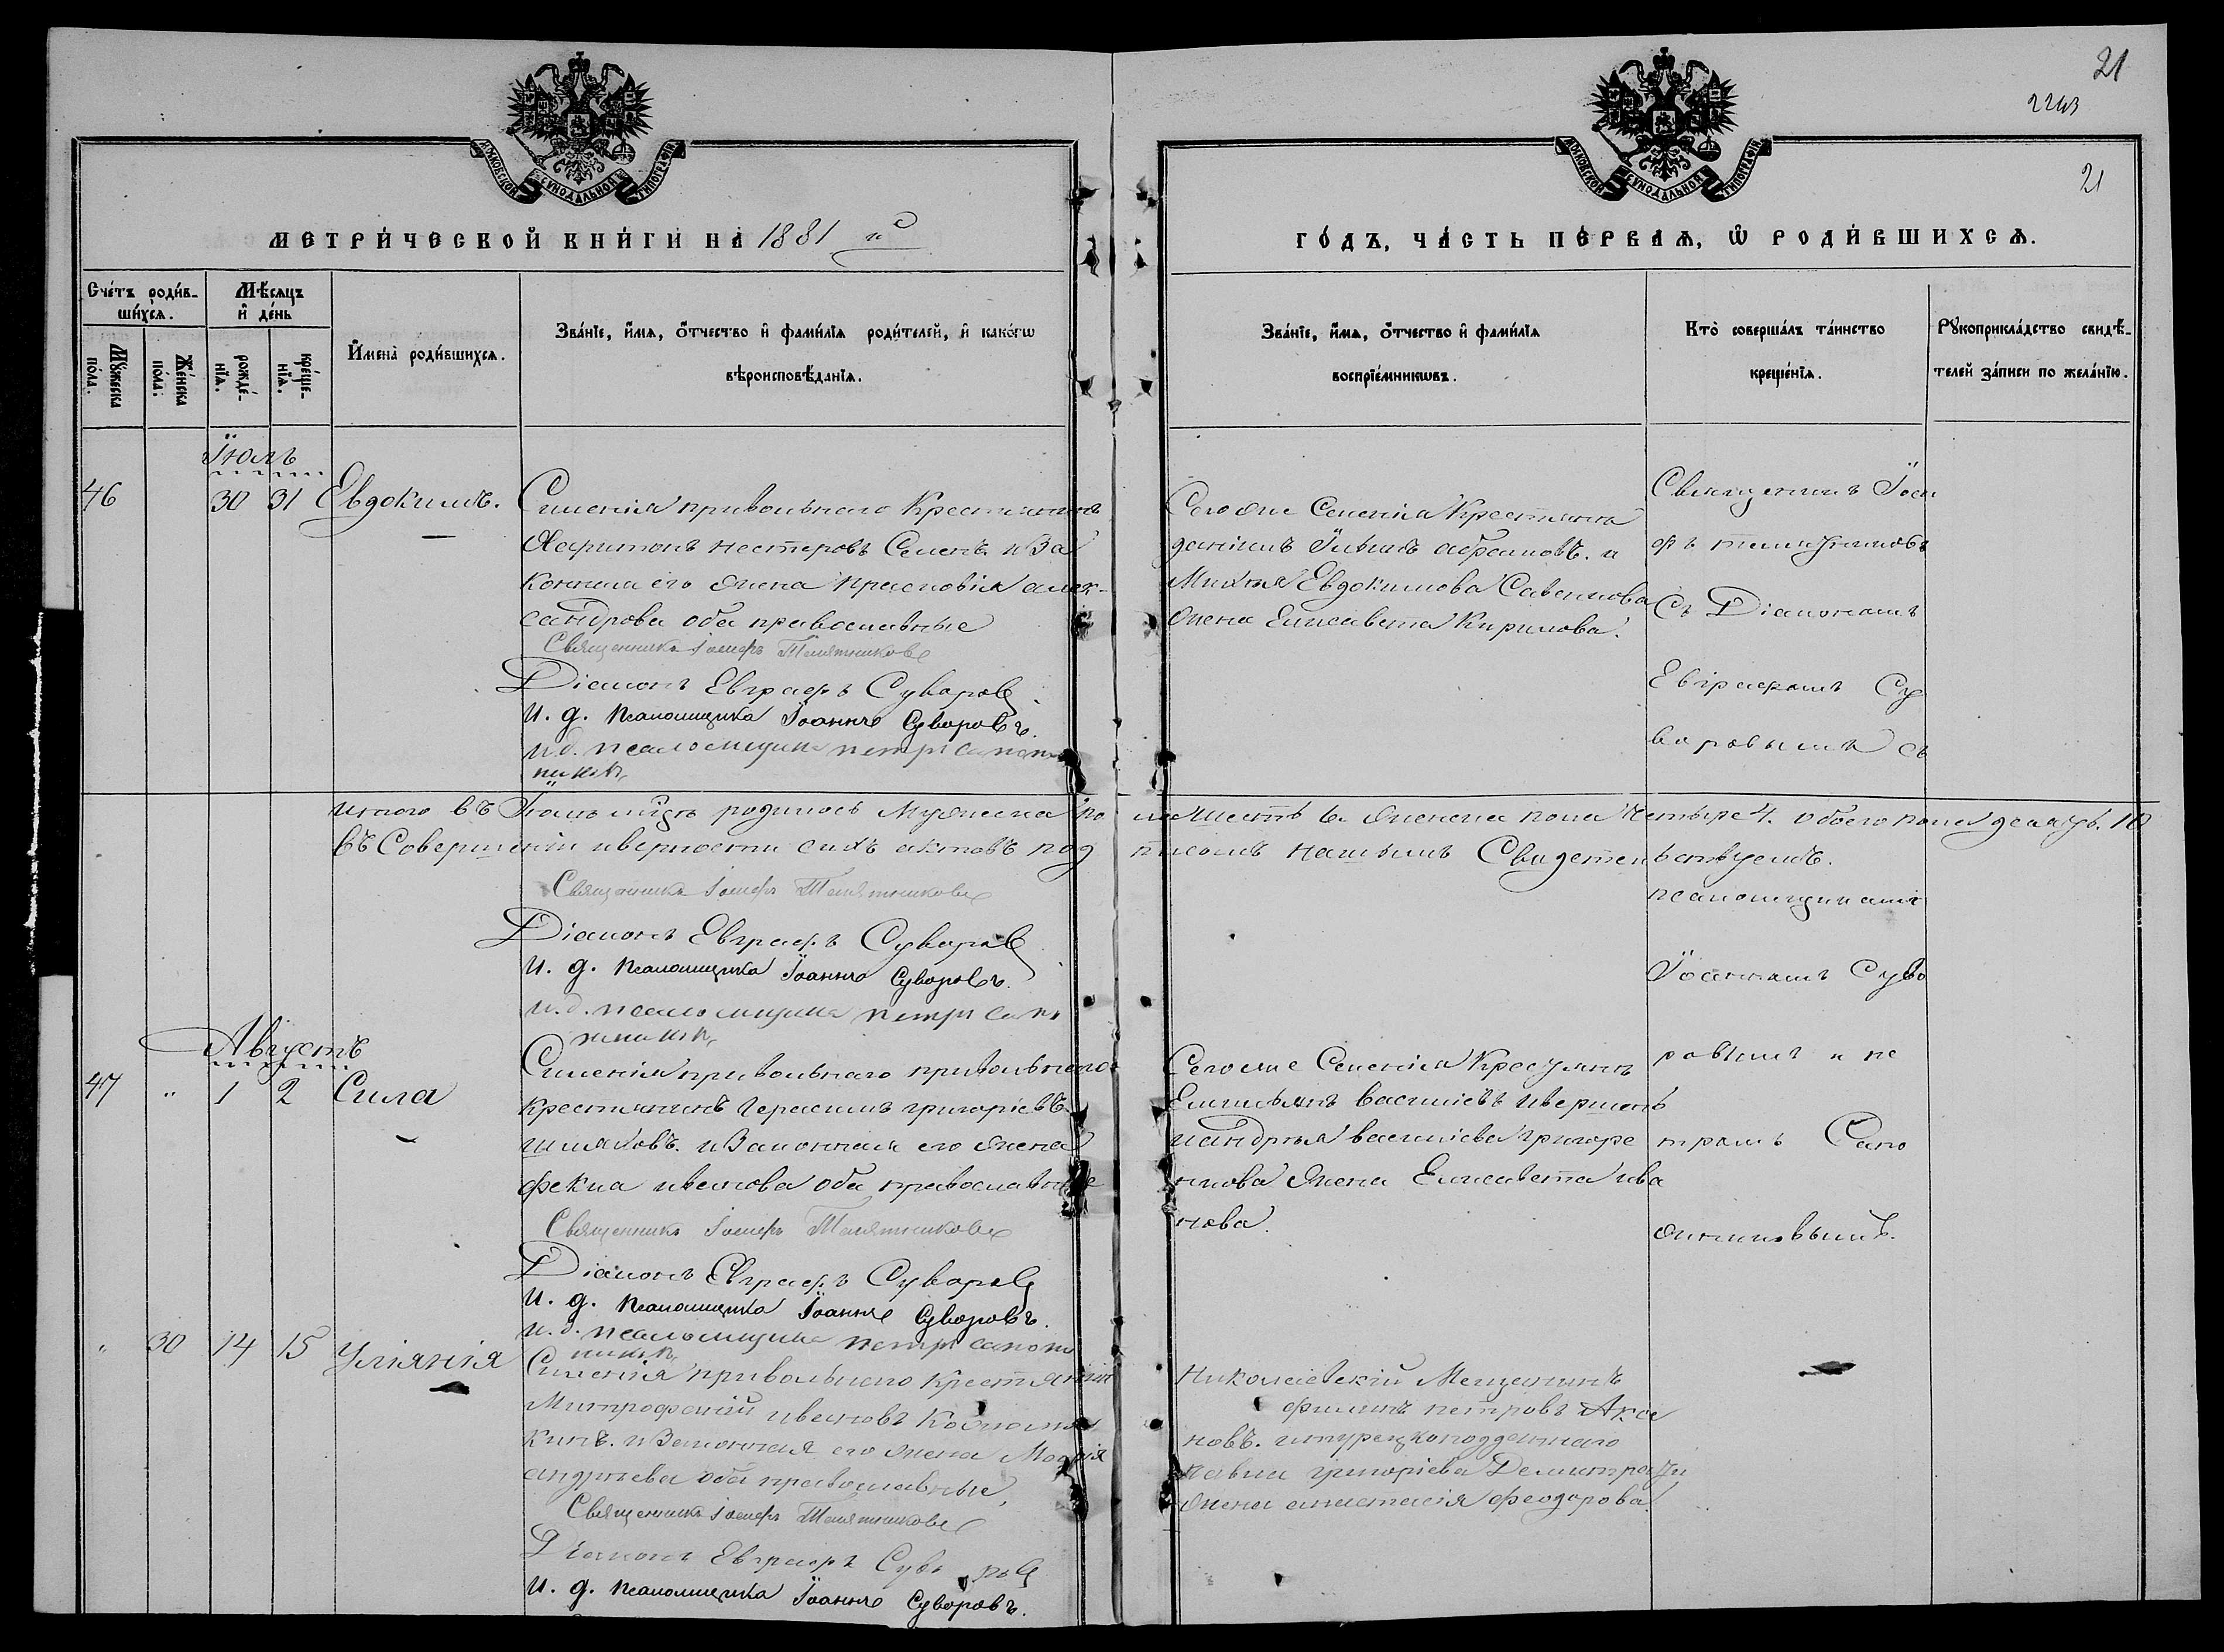 21
2243
21
МОСКОВСКОЙ СѴНОДАЛЬНОЙ ТИПОГРАФІИ
МОСКОВСКОЙ СѴНОДАЛЬНОЙ ТИПОГРАФІИ
МЕТРИ́ЧЕСКОЙ КНИ́ГИ НА 1881 й
ГО́ДЪ, ЧА́СТЬ ПЕ́РВАѦ, Ѡ҆ РОДИ́ВШИХСѦ.
Сче́тъ роди́в-
ши́хсѧ.
Мѣ́сѧцъ
и҆ де́нь
Мꙋ́жеска
по́ла.
Же́нска
по́ла.
рожде́-
нїѧ.
креще́-
нїѧ.
И҆мена̀ роди́вшихсѧ.
Зва́нїе, и҆́мѧ, ѻ҆́тчество и҆ фами́лїѧ роди́телей, и҆ како́гѡ
вѣроисповѣ́данїѧ.
Зва́нїе, и҆́мѧ, ѻ҆́тчество и҆ фами́лїѧ
воспрїе́мникѡвъ.
Кто̀ соверша́лъ та́инство
креще́нїѧ.
Рꙋкоприкла́дство свидѣ́-
телей за́писи по жела́нїю.
Іюль
46 30 31 Евдокимъ.
Силенія привольнаго Крестьянинъ
Харитонъ нестеровъ Семенъ. и За
конная его жена прасковія алек-
сандрова оба православные
Священникъ Іосифъ Телятниковъ
Діаконъ Евграфъ Суворовъ
И. д. псаломщика Іоаннъ Суворовъ.
и.д. псаломщика петръ сапож
никъ
Сегоже Селенія Крестьяне
даніилъ абрамовъ. и
Евдокимова Савенкова
жена Елисавета Кирилова.
Священникъ Іоси
фъ телятниковъ
Съ Діакономъ
Евграфомъ Су
воровымъ съ
псаломщиками
Іоанномъ Суво
ровымъ и пе
тромъ Сапо
жниковымъ.
итого въ Іюлѣ родилось Мужеска по ла шесть 6. женска пола четыре 4. обоего пола десять. 10
въ Совершеніи и верности сихъ актовъ под писомъ нашимъ Свидетельствуемъ.
Священникъ Іосифъ Телятниковъ
Діаконъ Евграфъ Суворовъ
И. д. псаломщика Іоаннъ Суворовъ.
и.д. псаломщика петръ сапо
жникъ
Августъ
47 " 1 2 Сила
Силенія привольнаго привольнаго
крестьянинъ Герасимъ григоріевъ
шляховъ. и Законная его жена
фекла иванова оба православные
Священникъ Іосифъ Телятниковъ
Діаконъ Евграфъ Суворовъ
И. д. псаломщика Іоаннъ Суворовъ.
и.д. псаломщика петръ сапож
никъ
Сегоже Селенія Крестьяне
Емельянъ василіевъ
василіева григоре
нкова жена Елисавета ива
нова.
" 30 14 15 Уліянія
Силенія привольнаго Крестьянинъ
Митрофаній ивановъ
кинъ. и Законная его жена Марія
андреева оба православные,
Священникъ Іосифъ Телятниковъ
Діаконъ Евграфъ Суворовъ
И. д. псаломщика Іоаннъ Суворовъ.
Николаевскій Мещанинъ
филипъ петровъ Аксе
новъ. и турецкоподданнаго
павла григоріева
жена анастасія феодорова.